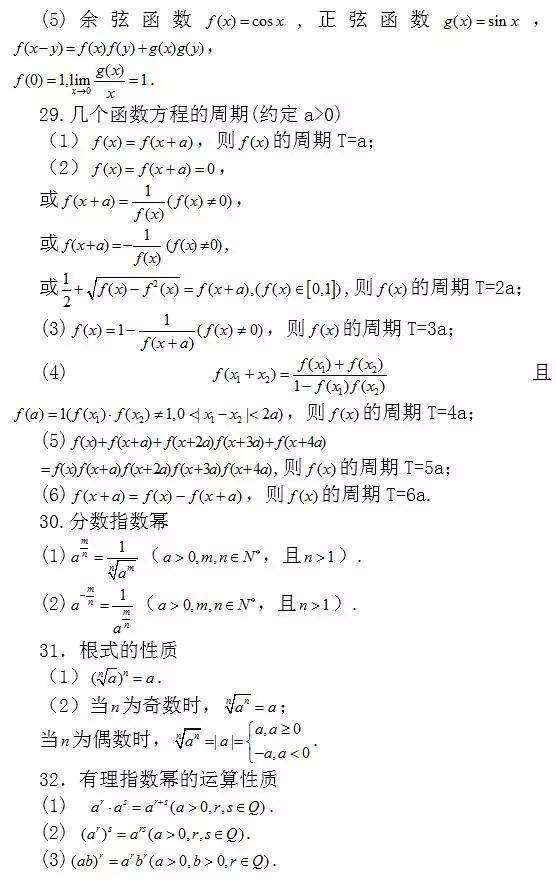 (5) 余弦函数 f(x)=cos x , 正弦函数 g(x)=sin x ,
f(x−y)=f(x)f(y)+g(x)g(y),
f(0)=1, lim_{x→0} g(x)/x =1.
29.几个函数方程的周期(约定 a>0)
(1) f(x)=f(x+a), 则 f(x) 的周期 T=a;
(2) f(x)=f(x+a)=0,
或 f(x+a)=1/f(x) (f(x)≠0),
或 f(x+a)=−1/f(x) (f(x)≠0),
或 1/2+√(f(x)−f²(x))=f(x+a),(f(x)∈[0,1]), 则 f(x) 的周期 T=2a;
(3) f(x)=1−1/f(x+a) (f(x)≠0), 则 f(x) 的周期 T=3a;
(4) f(x₁+x₂)=(f(x₁)+f(x₂))/(1−f(x₁)f(x₂)) 且
f(a)=1(f(x₁)·f(x₂)≠1,0<|x₁−x₂|<2a), 则 f(x) 的周期 T=4a;
(5) f(x)+f(x+a)+f(x+2a)f(x+3a)+f(x+4a)
=f(x)f(x+a)f(x+2a)f(x+3a)f(x+4a), 则 f(x) 的周期 T=5a;
(6) f(x+a)=f(x)−f(x+a), 则 f(x) 的周期 T=6a.
30.分数指数幂
(1) a^(m/n)=1/ⁿ√(a^m) (a>0,m,n∈N*, 且 n>1).
(2) a^(−m/n)=1/a^(m/n) (a>0,m,n∈N*, 且 n>1).
31．根式的性质
(1) (ⁿ√a)ⁿ=a.
(2) 当 n 为奇数时, ⁿ√(aⁿ)=a;
当 n 为偶数时, ⁿ√(aⁿ)=|a|={a,a≥0 −a,a<0.
32．有理指数幂的运算性质
(1) a^r·a^s=a^(r+s)(a>0,r,s∈Q).
(2) (a^r)^s=a^(rs)(a>0,r,s∈Q).
(3) (ab)^r=a^r b^r(a>0,b>0,r∈Q).